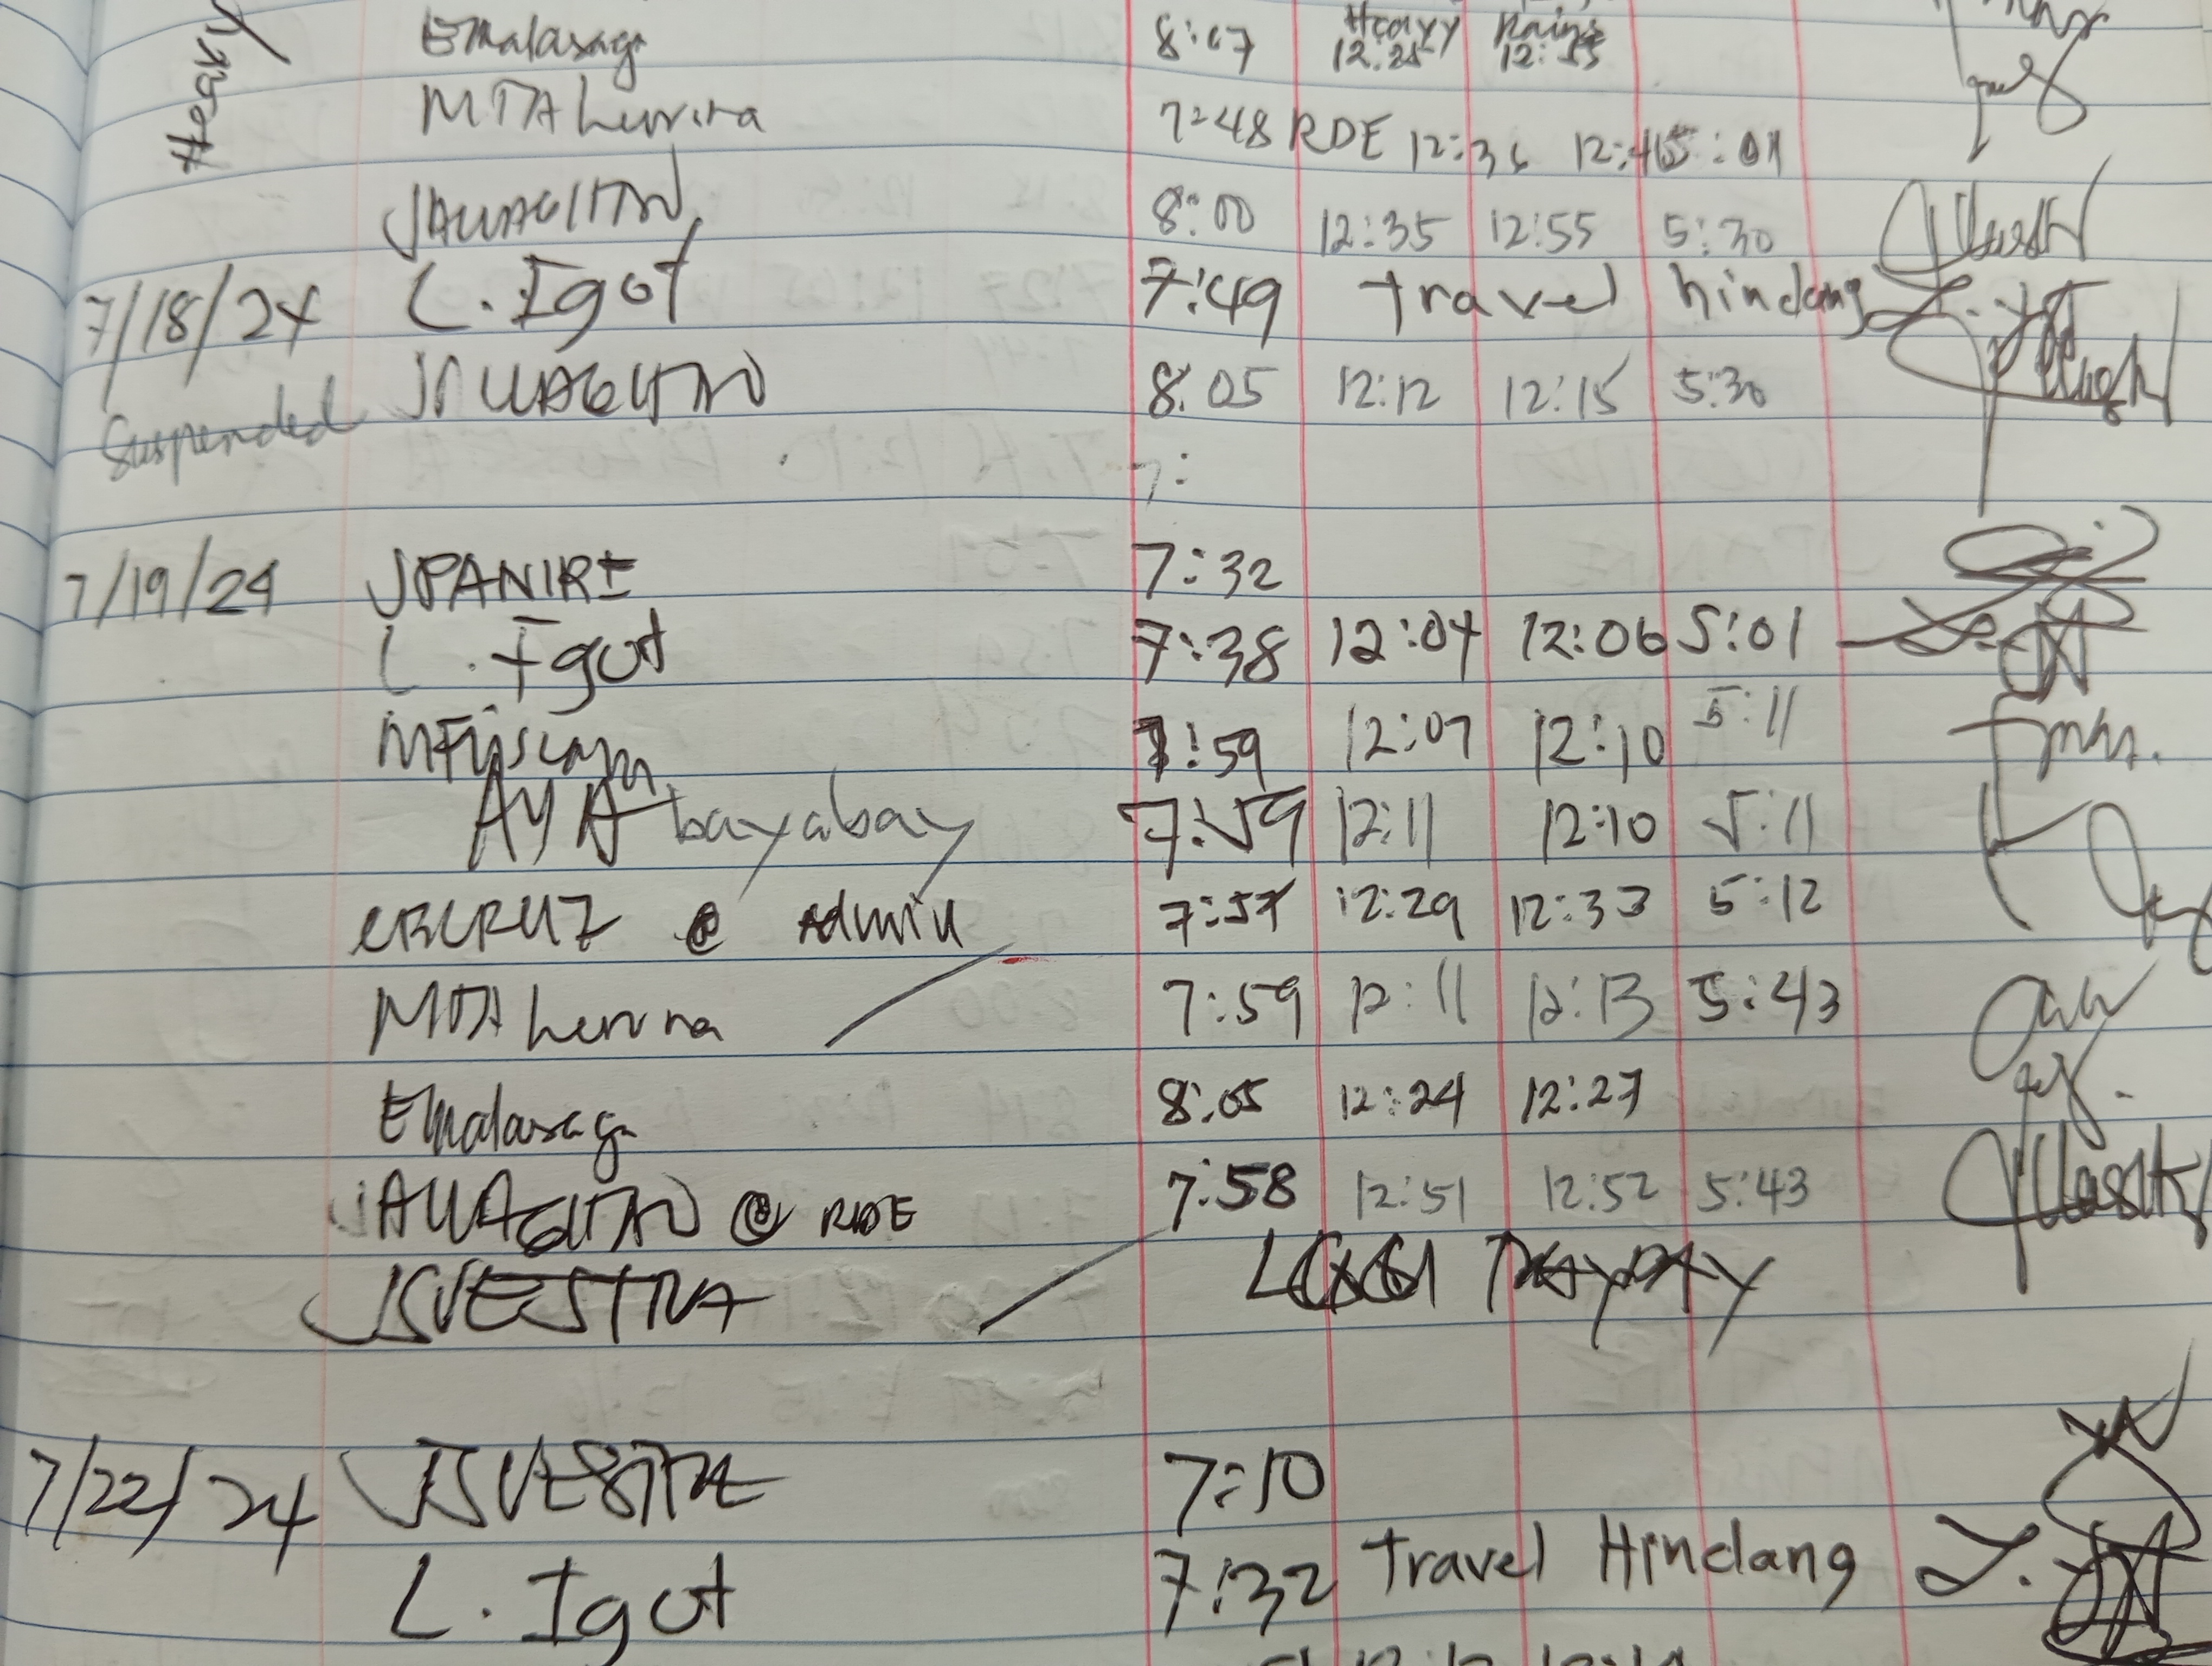 Heavy Rains
Heavy Emalasaga 8:07 12:25 12:55
MTA 7:48 RDE 12:36 12:45 5:01
8:00 12:35 12:55 5:30
7/18/24 L. Igot 7:49 travel hindang
Suspended 8:05 12:12 12:15 5:30
7:
7/19/24 JPANIRE 7:32
L. Igot 7:38 12:04 12:06 5:01
7:59 12:07 12:10 5:11
AYA bayabay 7:59 12:11 12:10 5:11
CRCRUZ @ Admin 7:57 12:29 12:33 5:12
MTA 7:59 12:11 12:13 5:43
Emalasaga 8:05 12:24 12:27
@ RDE 7:58 12:51 12:52 5:43
JSVESTRA
7/22/24 JSVESTRE 7:10
L. Igot 7:32 Travel Hindang